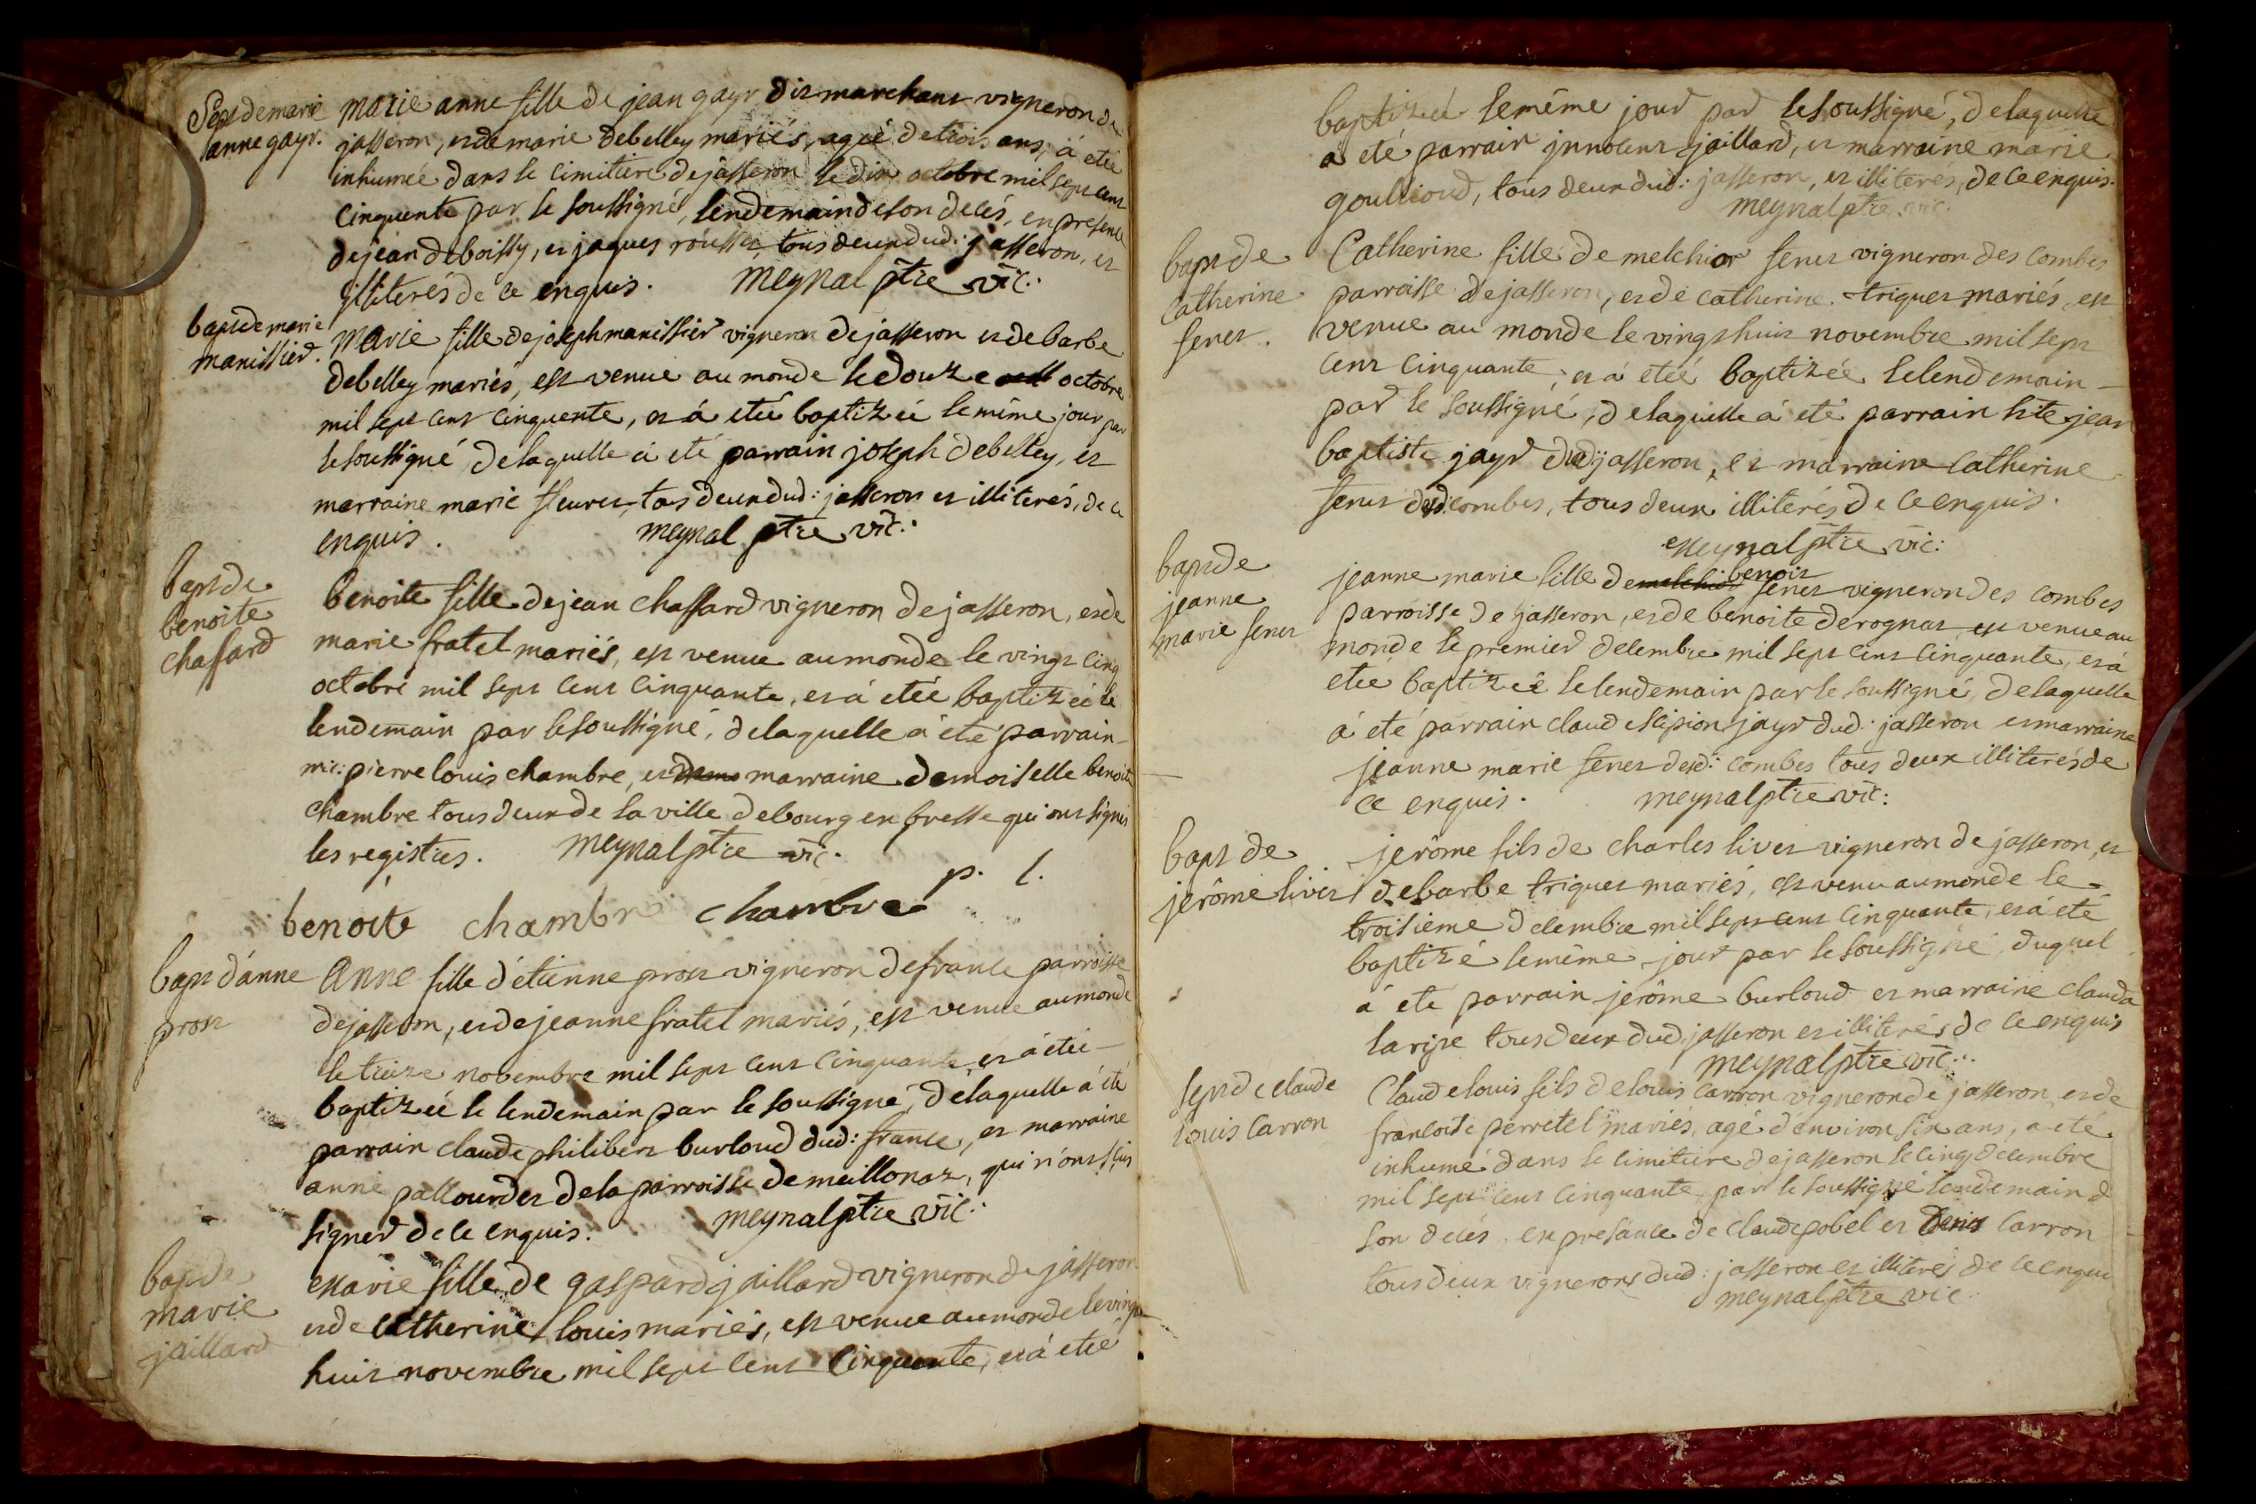 Sept de marie
anne gayr.
marie anne fille de jean gayr dit marchant vigneron de
jasseron, et de marie debelley mariés, agée de trois ans, à etée
inhumée dans le cimitiere de jasseron le dix octobre mil sept cent
cinquente par le soussigné, lendemain de son decés, en presence
de jean deboissy, et jaques rousset tous deux dud: jasseron, et
illiterés de ce enquis. meynal ptre vic:
bapt de marie
manissier.
marie fille de joseph manissier vigneron de jasseron et de barbe
debelley mariés, est venue au monde le douze octobre
mil sept cent cinquente, et à etée baptizée le même jour par
le soussigné, de laquelle à eté parrain joseph debelley, et
marraine marie fleuret, tous deux dud: jasseron et illiterés, de ce
enquis. meynal ptre vic:
bapt de
benoite
chassard
benoite fille de jean chassard vigneron de jasseron, et de
marie fratel mariés, est venue au monde le vingt cinq
octobre mil sept cent cinquante, et à etée baptizée le
lendemain par le soussigné, de laquelle à eté parrain
mr: pierre louis chambre, et marraine demoiselle benoite
chambre tous deux de la ville de bourg en bresse qui ont signés
les registres. meynal ptre vic:
benoite chambre chambre p. l.
bapt d'anne
prost
Anne fille d'etienne prost vigneron de france parroisse
de jasseron, et de jeanne fratel mariés, est venue au monde
le treize novembre mil sept cent cinquante et à etée
baptizée le lendemain par le soussigné, de laquelle à eté
parrain claude philibert burloud dud: france, et marraine
anne pallourdet de la parroisse de meillonaz, qui n'ont sçus
signer de ce enquis. meynal ptre vic:
bapt de
marie
jaillard
marie fille de gaspard jaillard vigneron de jasseron
et de catherine louis mariés, est venue au monde le vingt
huit novembre mil sept cent cinquante, et à etée
baptizée le même jour par le soussigné, de laquelle
à eté parrain jnnocent jaillard, et marraine marie
goullioud, tous deux dud: jasseron, et illiterés, de ce enquis.
meynal ptre vic:
bapt de
Catherine
feret.
Catherine fille de melchior feret vigneron des combes
parroisse de jasseron, et de catherine triquet mariés, est
venue au monde le vingt huit novembre mil sept
cent cinquante, et à etée baptizée le lendemain
par le soussigné, de laquelle à eté parrain hte jean
baptiste jayr dud: jasseron, et marraine catherine
feret desd: combes, tous deux illiterés de ce enquis.
meynal ptre vic:
bapt de
jeanne
marie feret
jeanne marie fille de melchior benoit feret vigneron des combes
parroisse de jasseron, et de benoite derognat est venue au
monde le premier decembre mil sept cent cinquante, et à
etée baptizée le lendemain par le soussigné, de laquelle
à eté parrain claude scipion jayr dud: jasseron et marraine
jeanne marie feret desd: combes tous deux illiterés de
ce enquis. meynal ptre vic:
bapt de
jerôme livet
jerôme fils de charles livet vigneron de jasseron, et
de barbe triquet mariés, est venu au monde le
troisieme decembre mil sept cent cinquante, et à eté
baptizé le même jour par le soussigné, duquel
à eté parrain jerôme burloud et marraine clauda
larije tous deux dud: jasseron et illiterés de ce enquis
meynal ptre vic:
Sept de claude
louis Carron
Claude louis fils de louis carron vigneron de jasseron, et de
francoise perretel mariés, agé d'environ six ans, a eté
inhumé dans le cimitiere de jasseron le cinq decembre
mil sept cent cinquante par le soussigné lendemain de
son decés, en presance de claude pobel et denis carron
tous deux vignerons dud: jasseron et illiterés de ce enquis
meynal ptre vic: